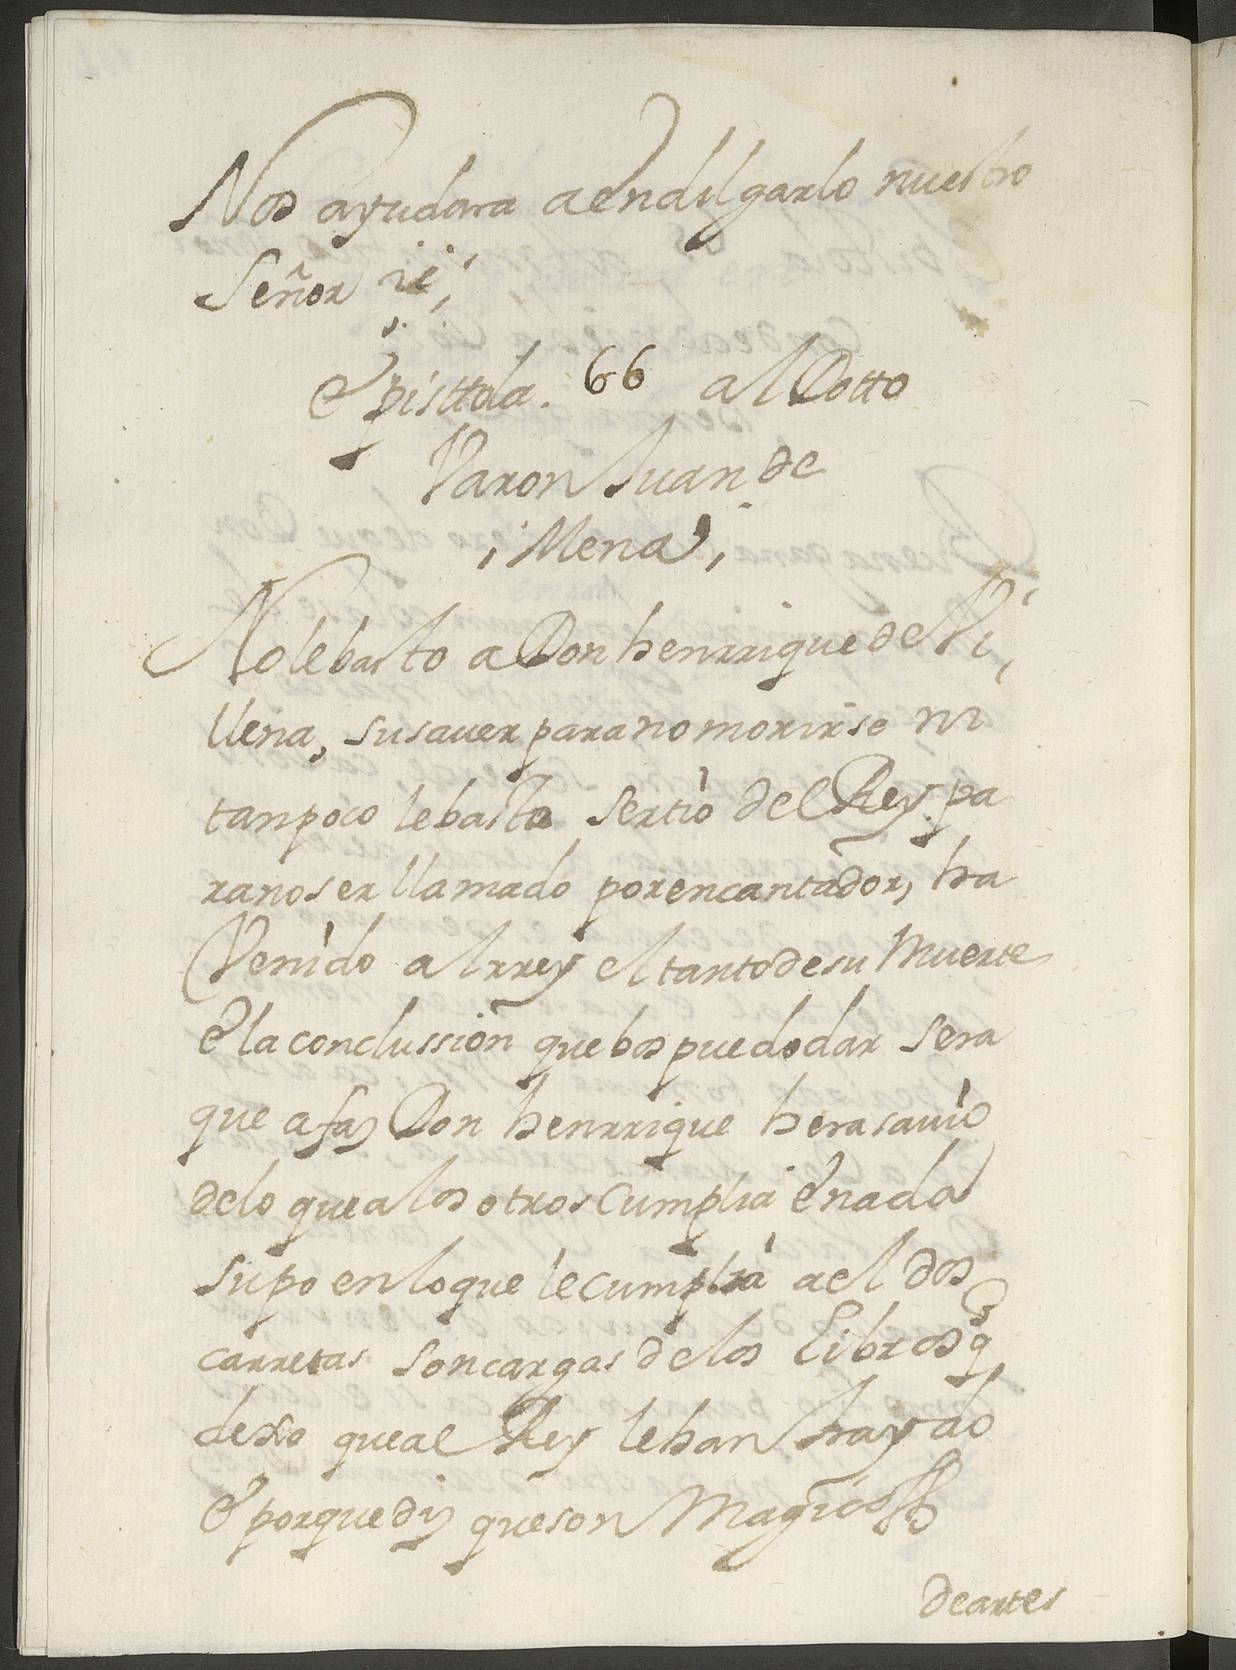 Nos ayudara aendilgarlo nuestro
Señor
episttola. 66 al Dotto
Varon Juan de
Mena,
No le basto a Don henrrique de Vi,
llena, su saver para no morirse ni
tanpoco le basto ser tio del Rey pa
ra no ser llamado por encantador, ha
Venido al rrey el tanto de su Muerte
e la conclussion que bos puedo dar sera
que afaz Don henrrique hera savio
de lo que a los otros cumplia e nada
supo en lo que le cumplia a el dos
carretas son cargas de los Libros q
dexo que al Rey le han traydo
e porque diz que son Magicos
de artes